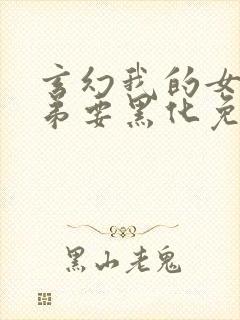 玄幻我的女
弟要黑化免
黑山老鬼